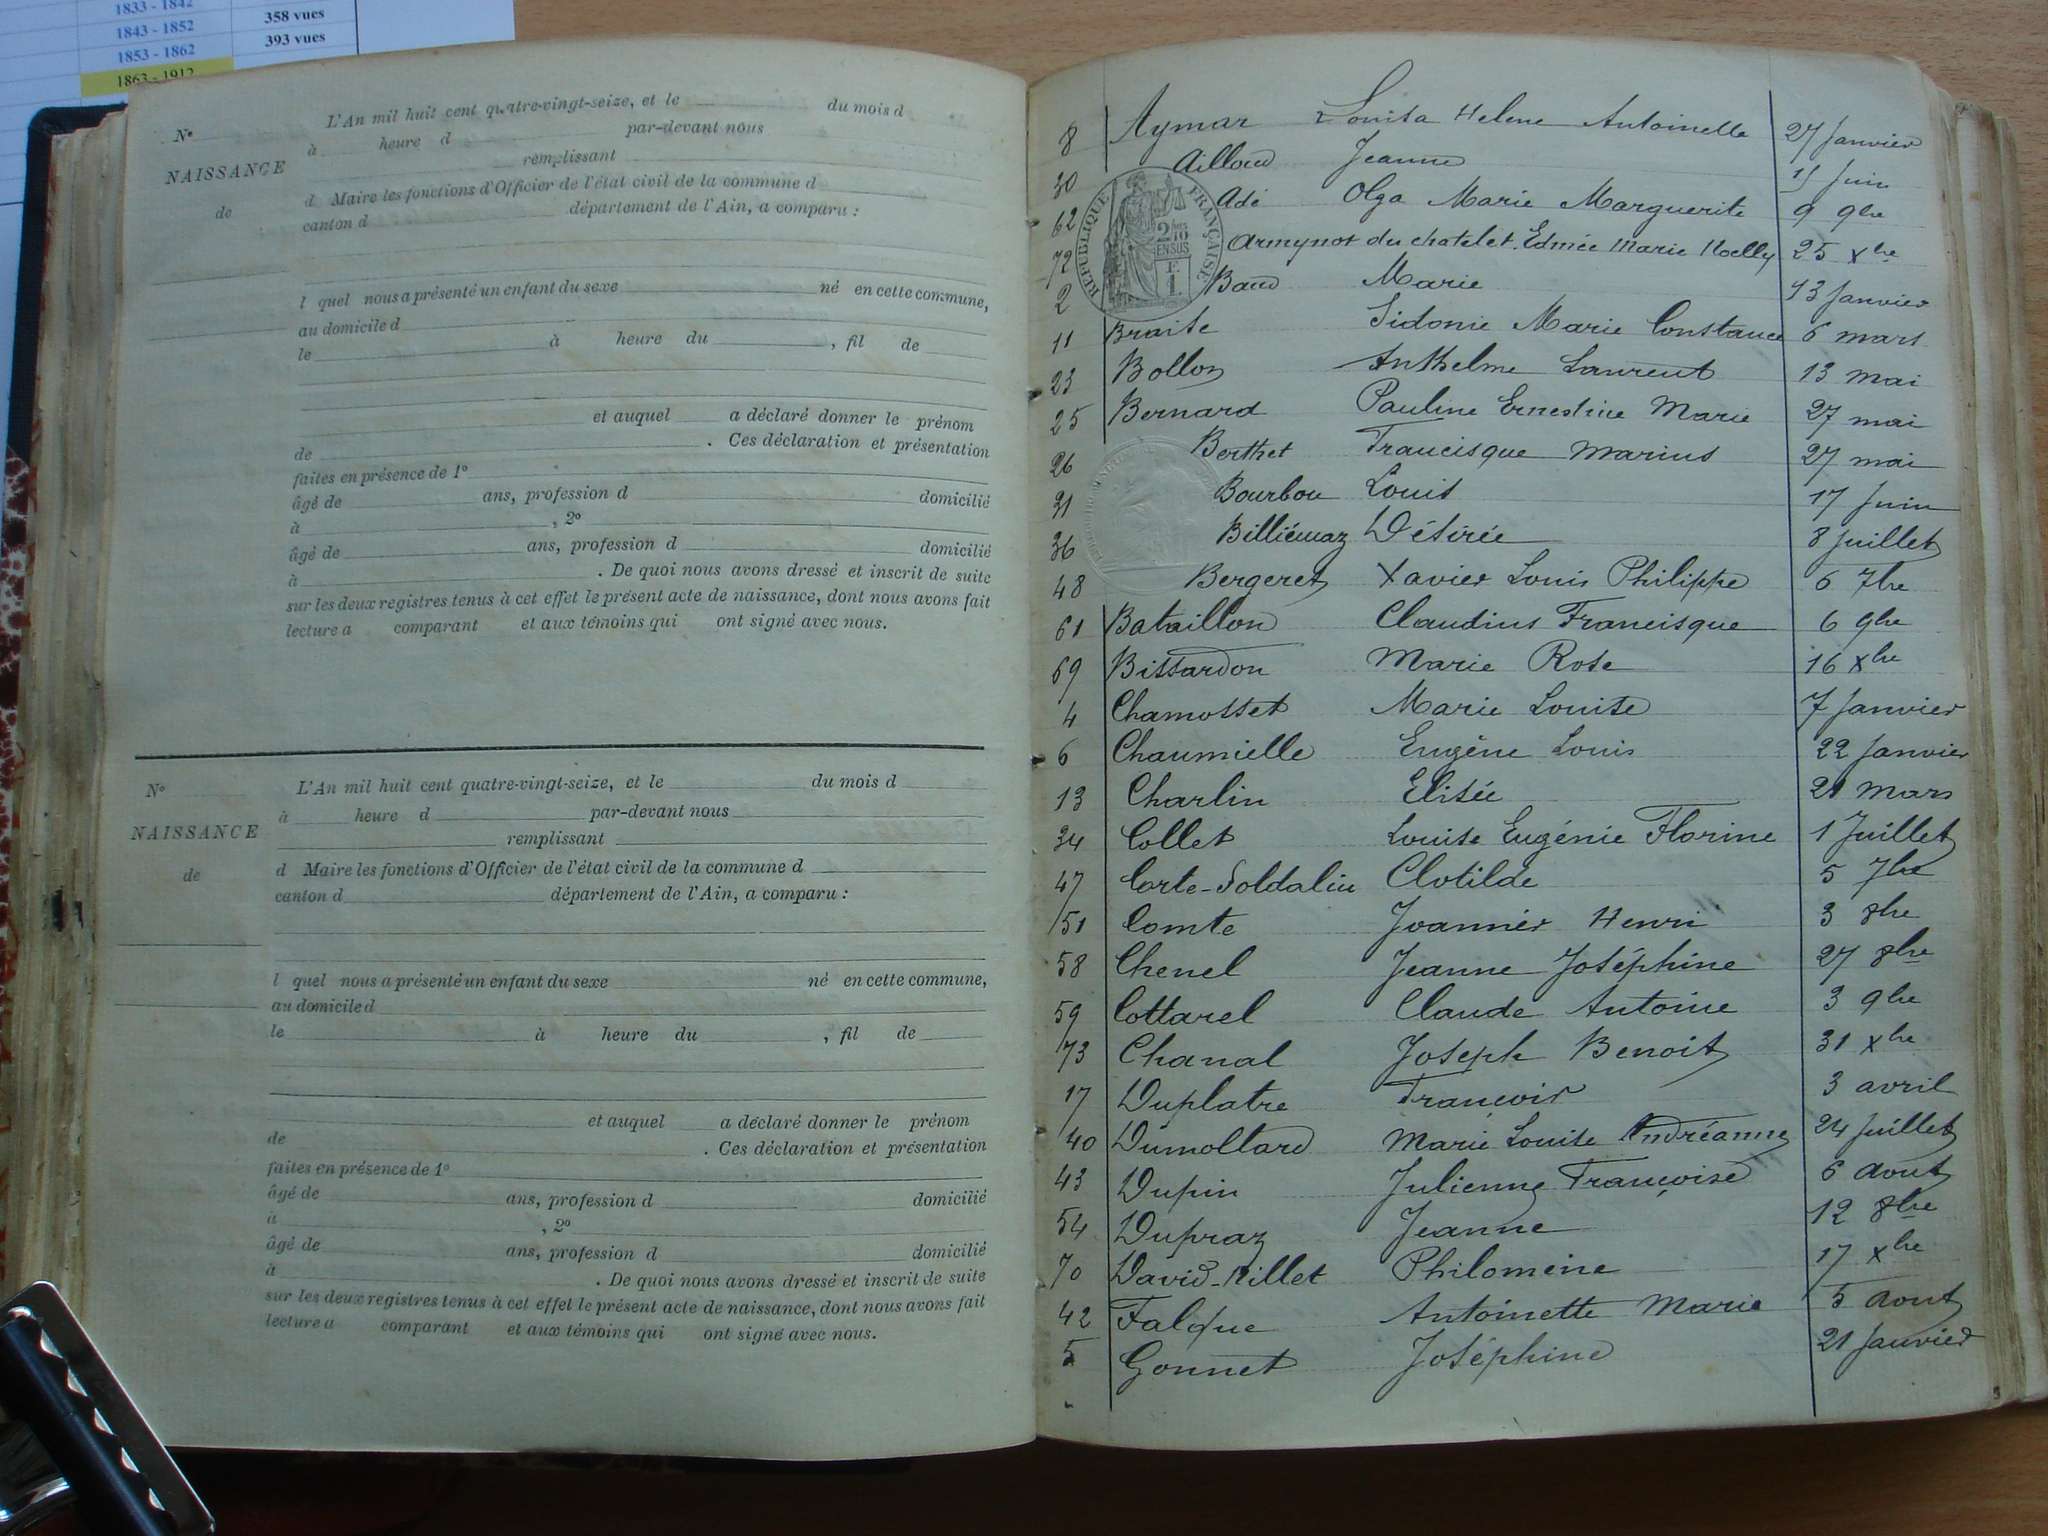 1833 - 1842
1843 - 1852 358 vues
1853 - 1862 393 vues
1863 - 1912
L'An mil huit cent quatre-vingt-seize, et le du mois d
N°
à heure d par-devant nous
NAISSANCE
remplissant
de
d Maire les fonctions d'Officier de l'état civil de la commune d
canton d département de l'Ain, a comparu :
l quel nous a présenté un enfant du sexe né en cette commune,
au domicile d
le à heure du , fil de
et auquel a déclaré donner le prénom
de . Ces déclaration et présentation
faites en présence de 1°
âgé de ans, profession d domicilié
à , 2°
âgé de ans, profession d domicilié
à . De quoi nous avons dressé et inscrit de suite
sur les deux registres tenus à cet effet le présent acte de naissance, dont nous avons fait
lecture a comparant et aux témoins qui ont signé avec nous.
N° L'An mil huit cent quatre-vingt-seize, et le du mois d
à heure d par-devant nous
NAISSANCE
remplissant
de
d Maire les fonctions d'Officier de l'état civil de la commune d
canton d département de l'Ain, a comparu :
l quel nous a présenté un enfant du sexe né en cette commune,
au domicile d
le à heure du , fil de
et auquel a déclaré donner le prénom
de . Ces déclaration et présentation
faites en présence de 1°
âgé de ans, profession d domicilié
à , 2°
âgé de ans, profession d domicilié
à . De quoi nous avons dressé et inscrit de suite
sur les deux registres tenus à cet effet le présent acte de naissance, dont nous avons fait
lecture a comparant et aux témoins qui ont signé avec nous.
8 Aymar Louisa Helene Antoinette 27 Janvier
30 Ailloud Jeanne 15 Juin
62 Adé Olga Marie Marguerite 9 9bre
72 Armynot du chatelet Edmée Marie Noelly 25 Xbre
RÉPUBLIQUE FRANÇAISE
2/10 EN SUS
F. 1.
2 Baud Marie 13 Janvier
11 Braite Sidonie Marie Constance 6 mars
23 Bollon Anthelme Laurent 13 mai
25 Bernard Pauline Ernestine Marie 27 mai
26 Berthet Francisque Marius 27 mai
31 Bourbon Louis 17 Juin
36 Billiémaz Désirée 8 Juillet
48 Bergeret Xavier Louis Philippe 6 7bre
61 Bataillon Claudius Francisque 6 9bre
69 Bissardon Marie Rose 16 Xbre
4 Chamosset Marie Louise 7 Janvier
6 Chaumielle Eugène Louis 22 Janvier
13 Charlin Elisée 21 Mars
34 Collet Louise Eugénie Florine 1 Juillet
47 Corte-Soldalin Clotilde 5 7bre
51 Comte Joannès Henri 3 8bre
58 Chenel Jeanne Joséphine 27 8bre
59 Cottarel Claude Antoine 3 9bre
73 Chanal Joseph Benoit 31 Xbre
17 Duplatre François 3 avril
40 Dumollard Marie Louise Andréanne 24 Juillet
43 Dupin Julienne Françoise 6 Aout
54 Dupraz Jeanne 12 8bre
70 David-Nillet Philomène 17 Xbre
42 Falque Antoinette Marie 5 Aout
5 Gonnet Joséphine 21 Janvier